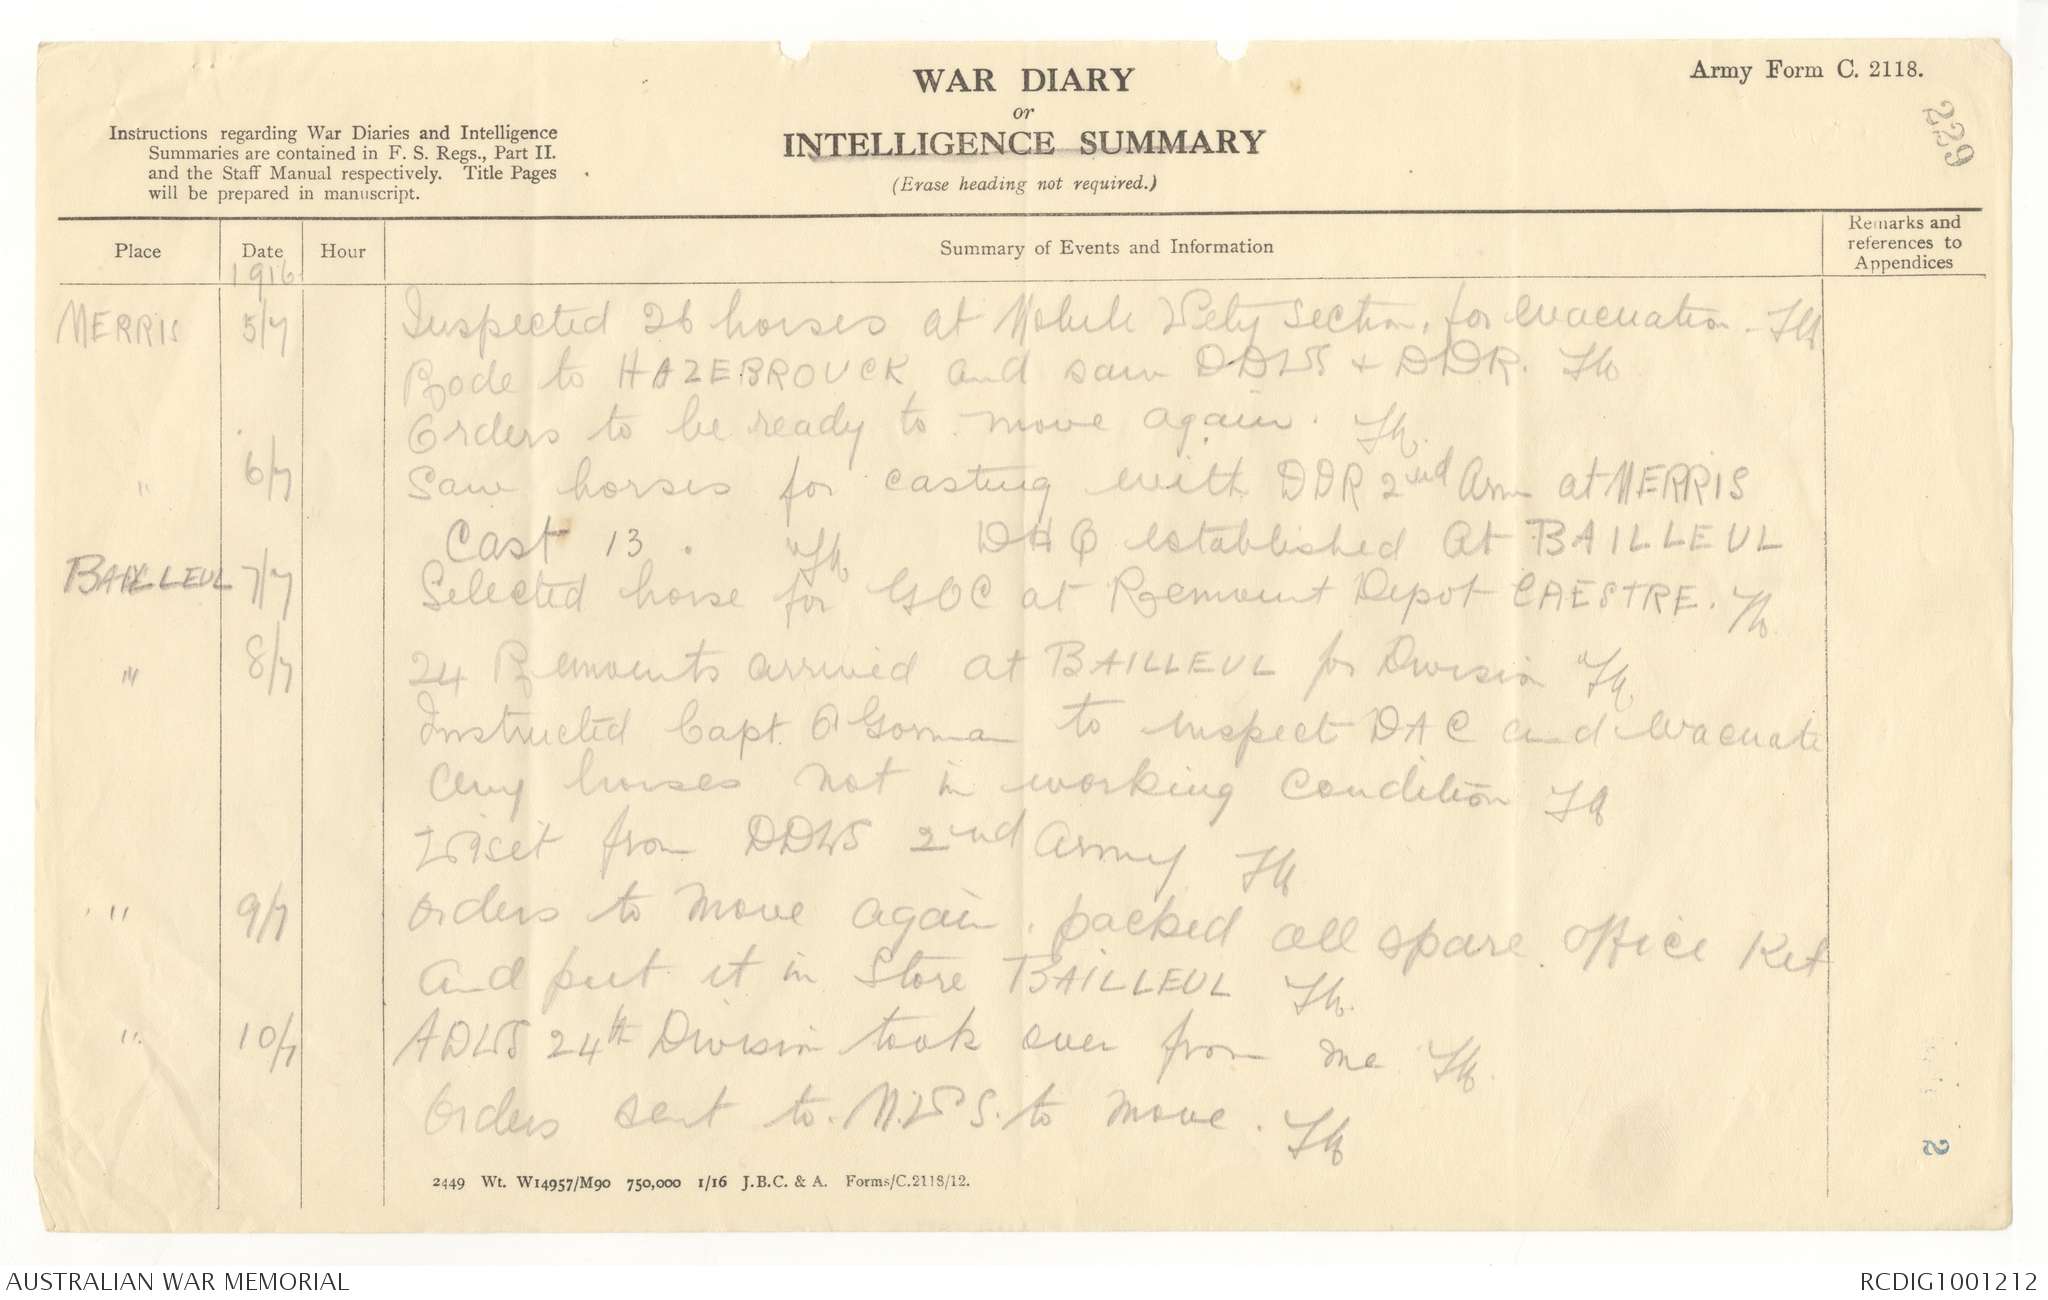 WAR DIARY
or
INTELLIGENCE SUMMARY
(Erase heading not required.)
Army Form C. 2118.
229
Instructions regarding War Diaries and Intelligence
Summaries are contained in F. S. Regs., Part II.
and the Staff Manual respectively. Title Pages
will be prepared in manuscript.
Place Date Hour Summary of Events and Information Remarks and references to Appendices
1916
MERRIS 5/7 Inspected 26 horses at Mobile Vety Section, for evacuation
Rode to HAZEBROUCK and saw DDVS + DDR.
Orders to be ready to move again.
" 6/7 Saw horses for casting with DDR 2nd Army at MERRIS
Cast 13. DHQ established at BAILLEUL
BAILLEUL 7/7 Selected horse for GOC at Remount Depot CAESTRE.
" 8/7 24 Remounts arrived at BAILLEUL for Division
Instructed Capt. O'Gorman to inspect DAC and evacuate
any horses not in working condition
Visit from DDVS 2nd Army
" 9/7 Orders to move again. packed all spare office kit
and put it in Store BAILLEUL
" 10/7 ADVS 24th Division took over from me
Orders sent to M.V.S. to move.
2449 Wt. W14957/M90 750,000 1/16 J.B.C. & A. Forms/C.2118/12.
2
AUSTRALIAN WAR MEMORIAL
RCDIG1001212